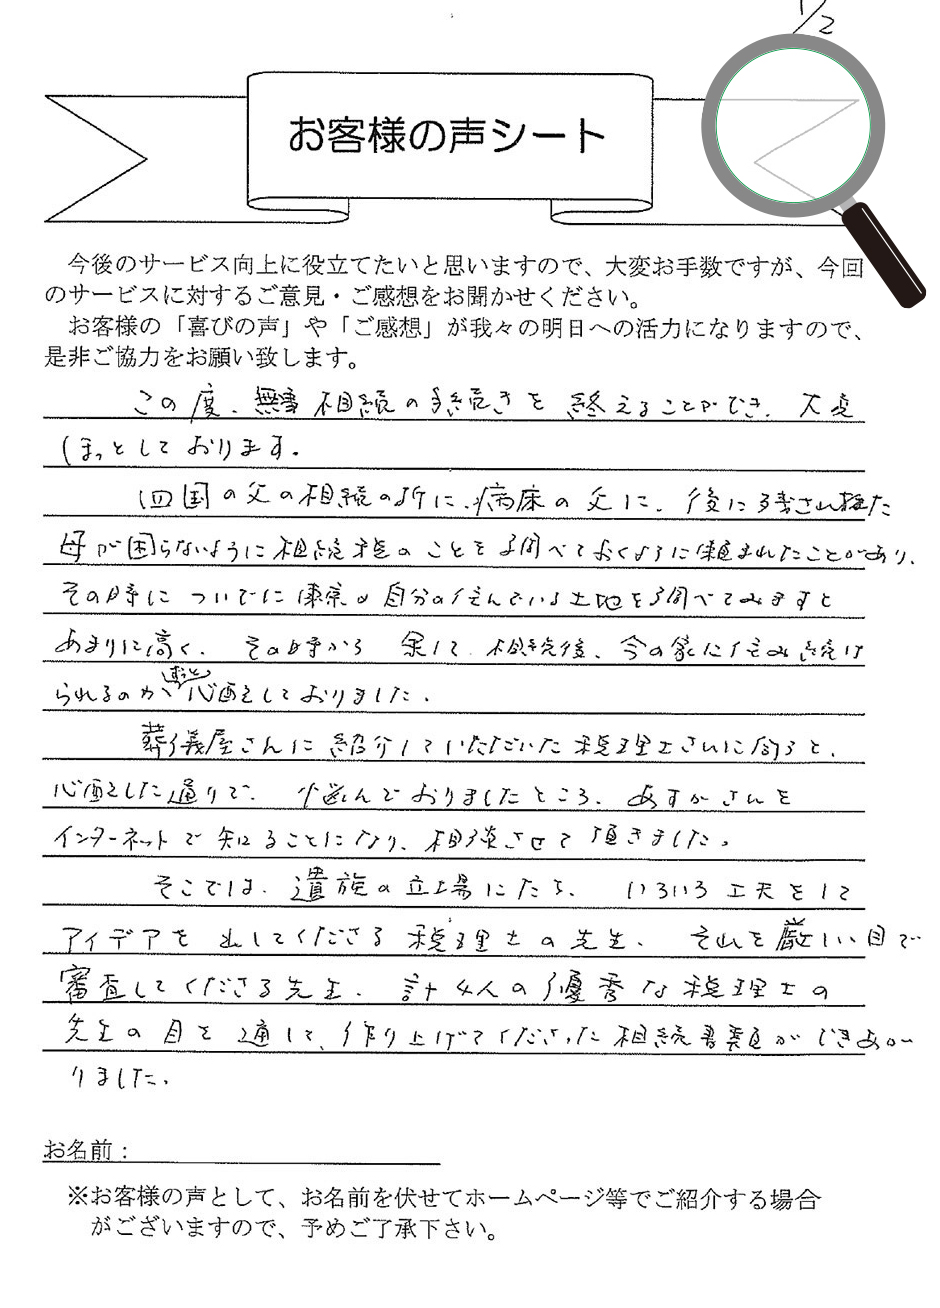 1/2
お客様の声シート
今後のサービス向上に役立てたいと思いますので、大変お手数ですが、今回
のサービスに対するご意見・ご感想をお聞かせください。
お客様の「喜びの声」や「ご感想」が我々の明日への活力になりますので、
是非ご協力をお願い致します。
この度、無事相続の手続きを終えることができ、大変
ほっとしております。
四国の父の相続の時に、病床の父に、後に残された
母が困らないように相続税のことを調べておくように頼まれたことがあり、
その時についでに東京の自分の住んでいる土地を調べてみますと
あまりに高く、その時から 余して 相続後、今の家に住み続け
られるのかずっと心配をしておりました。
葬儀屋さんに紹介していただいた税理士さんに伺うと、
心配した通りで、悩んでおりましたところ、あすかさんを
インターネットで知ることになり、相談させて頂きました。
そこでは、遺族の立場にたち、いろいろ工夫をして
アイデアを出してくださる税理士の先生、それを厳しい目で
審査してくださる先生、計4人の優秀な税理士の
先生の目を通して、作り上げてくださった相続書類ができあが
りました。
お名前：
※お客様の声として、お名前を伏せてホームページ等でご紹介する場合
がございますので、予めご了承下さい。